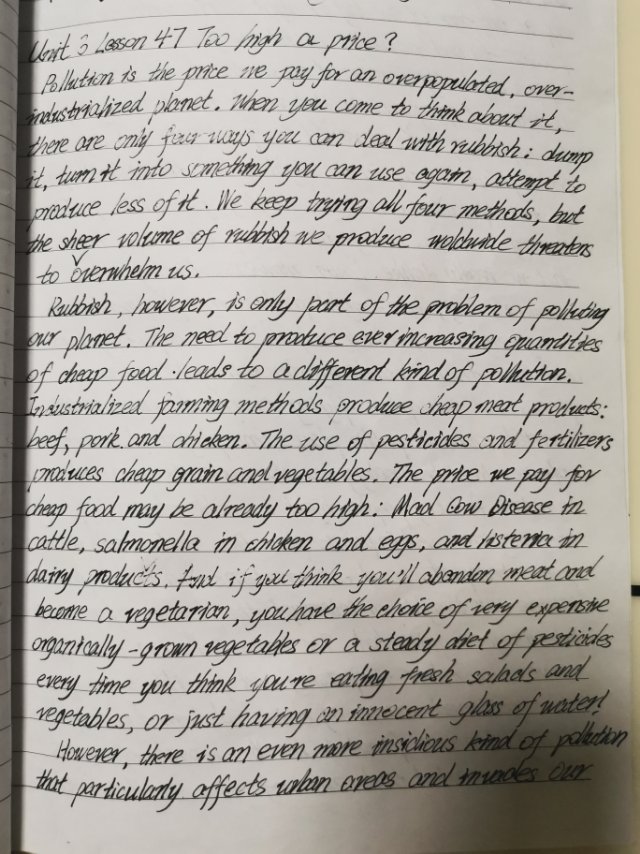 Unit 3 Lesson 47 Too high a price?
Pollution is the price we pay for an overpopulated, over-
industrialized planet. When you come to think about it,
there are only four ways you can deal with rubbish: dump
it, turn it into something you can use again, attempt to
produce less of it. We keep trying all four methods, but
the sheer volume of rubbish we produce woldwide threatens
to overwhelm us.
Rubbish, however, is only part of the problem of polluting
our planet. The need to produce ever increasing quantities
of cheap food leads to a different kind of pollution.
Industrialized farming methods produce cheap meat products:
beef, pork and chicken. The use of pesticides and fertilizers
produces cheap grain and vegetables. The price we pay for
cheap food may be already too high: Mad Cow Disease in
cattle, salmonella in chicken and eggs, and listeria in
dairy products. And if you think you'll abandon meat and
become a vegetarian, you have the choice of very expensive
organically-grown vegetables or a steady diet of pesticides
every time you think you're eating fresh salads and
vegetables, or just having an innocent glass of water!
However, there is an even more insidious kind of pollution
that particularly affects urban areas and invades our